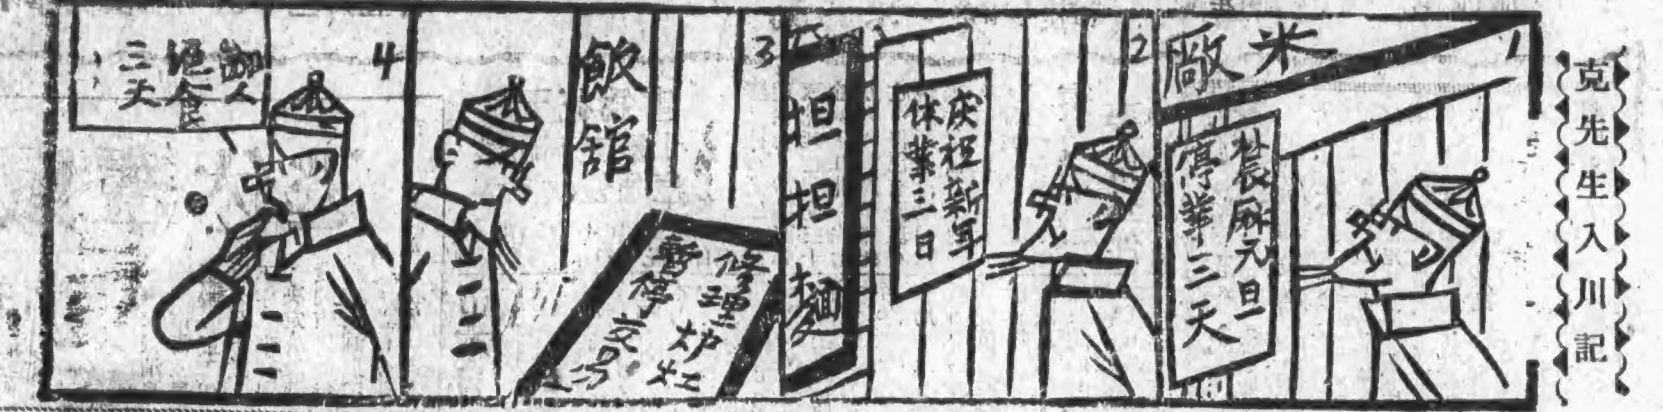 克先生入川記
1
米廠
農厤元旦
停業三天
2
庆祝新年
休業三日
担担麵
3
飯舘
修理炉灶
暫停交易
4
鄙人
絕食
三天